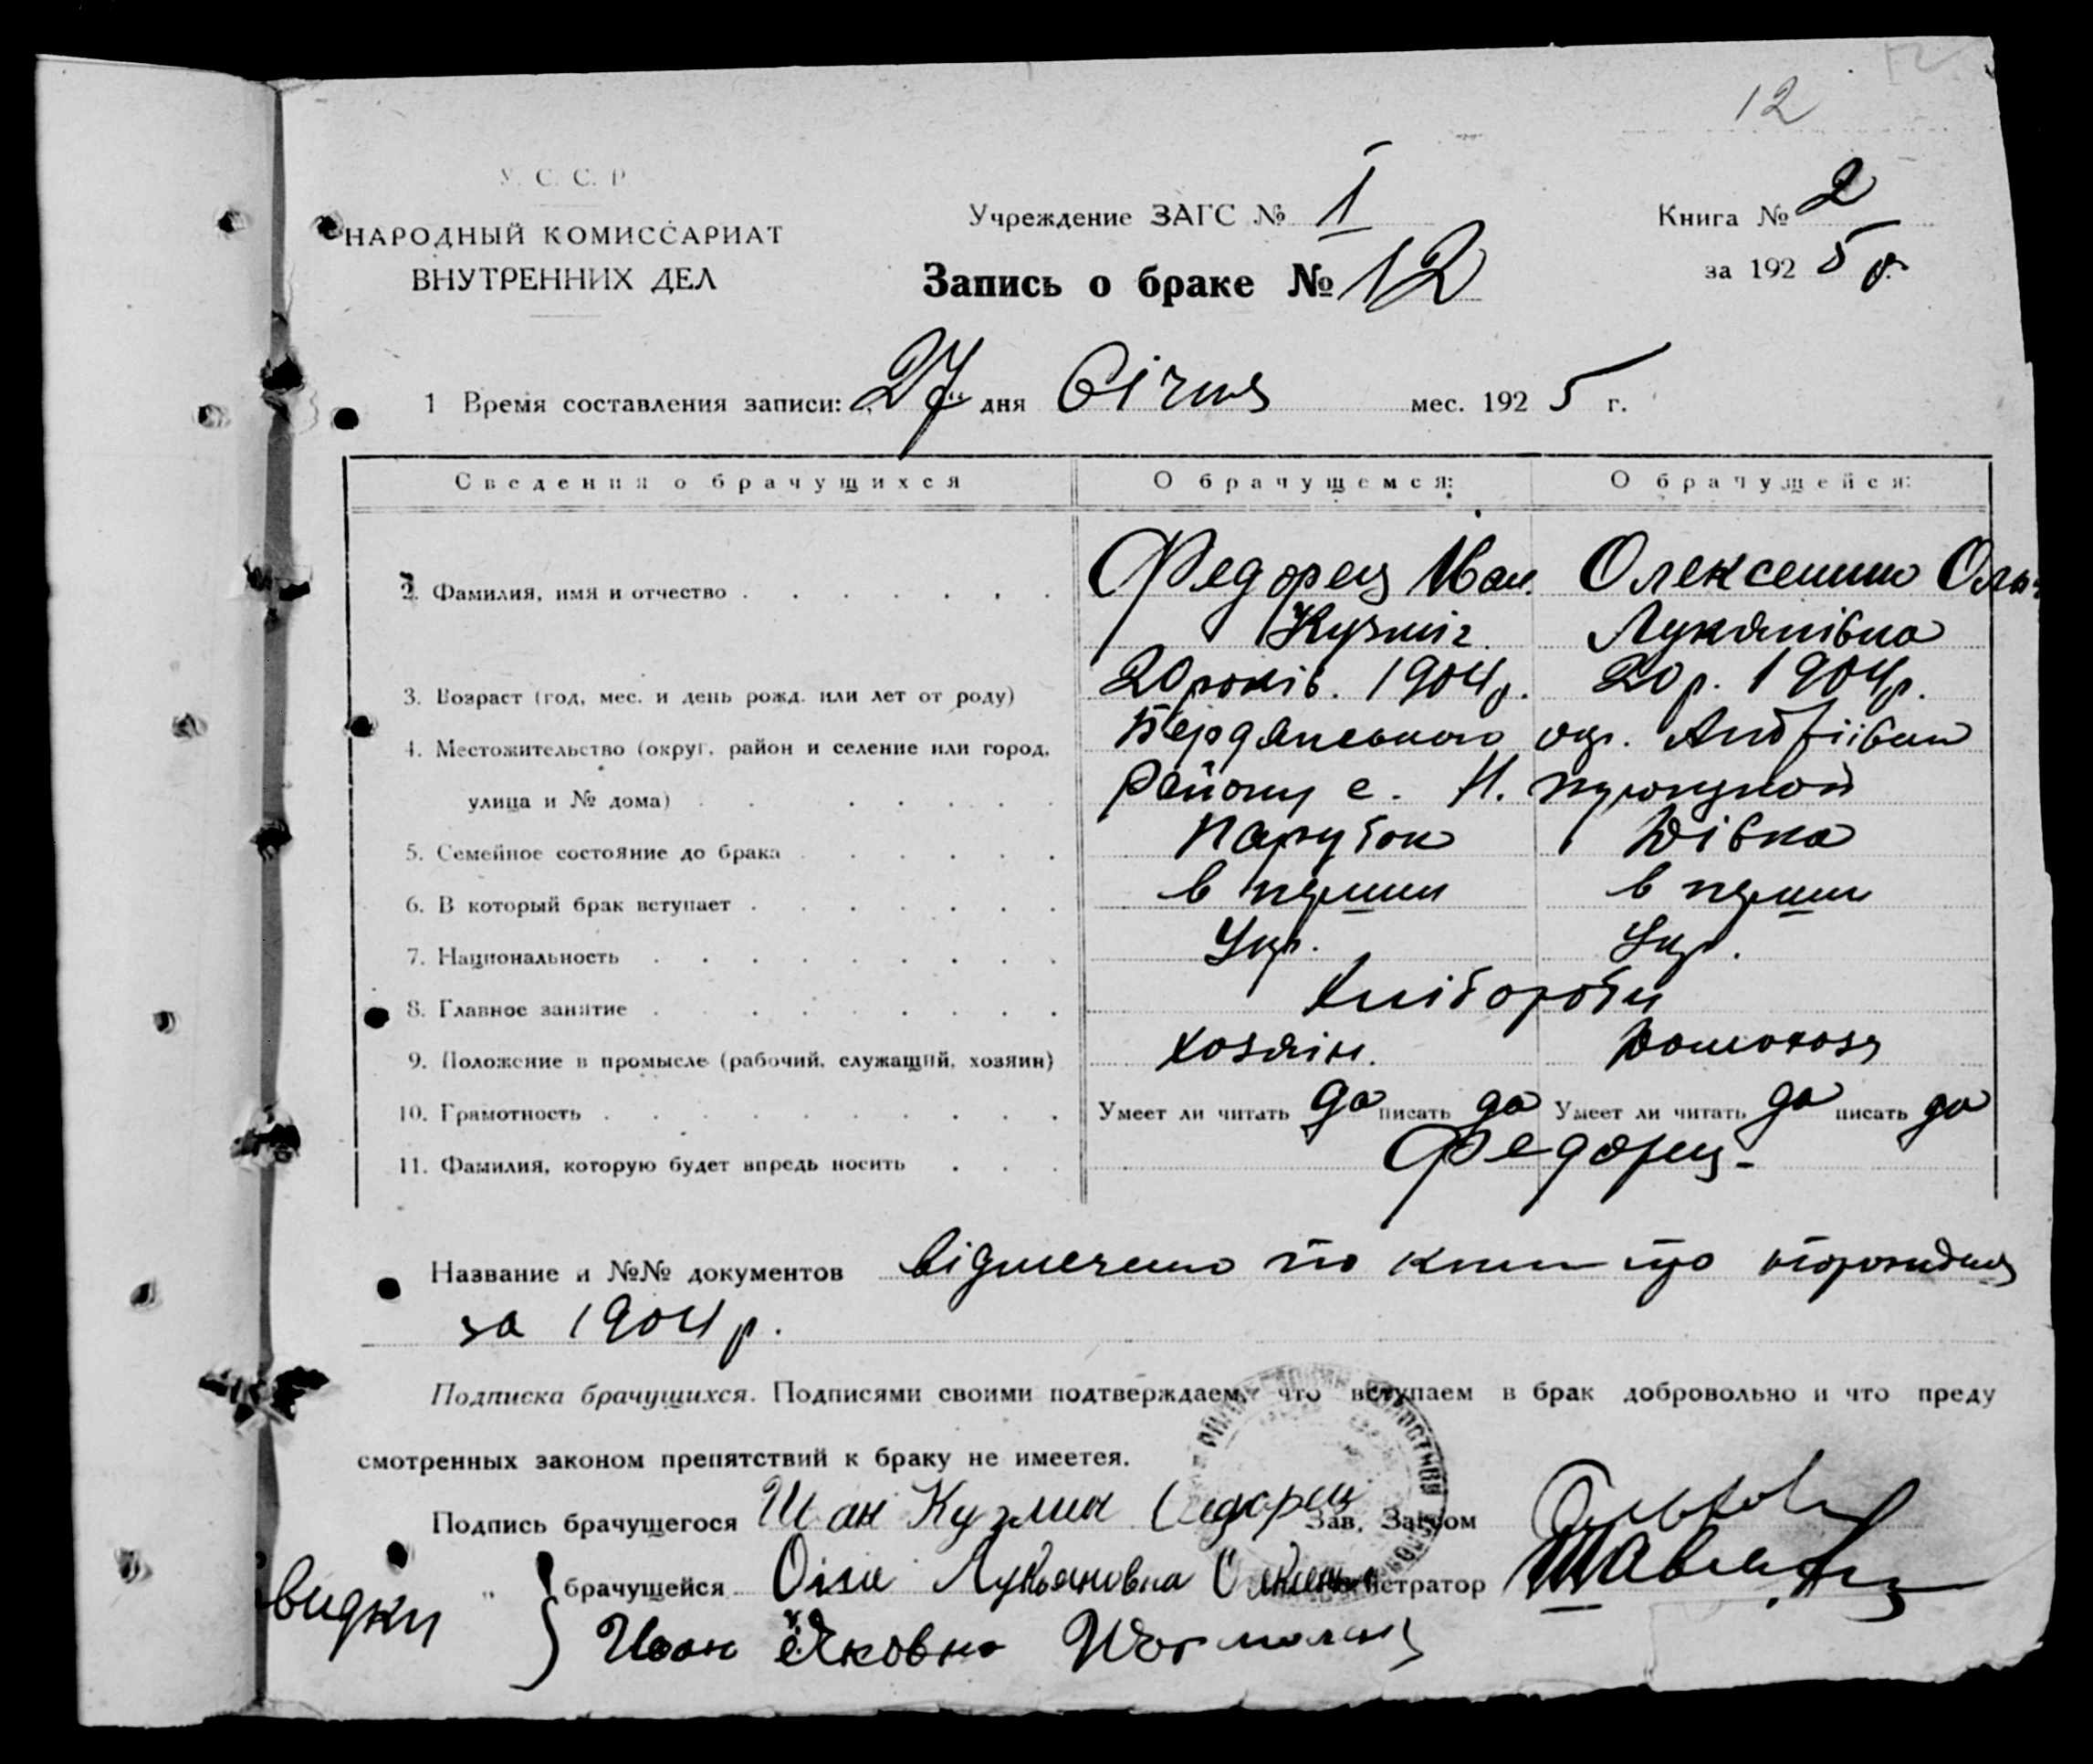 12
У. С. С. Р
НАРОДНЫЙ КОМИССАРИАТ
ВНУТРЕННИХ ДЕЛ
Учреждение ЗАГС № 1
Книга № 2
за 1925 р.
Запись о браке № 12
1 Время составления записи: „27“ дня Січня мес. 1925 г.
Сведения о брачущихся О брачущемся: О брачущейся:
2. Фамилия, имя и отчество . . . . . . . Федорец Иван Олексенко
Кузмич Лукянівна
3. Возраст (год, мес. и день рожд. или лет от роду) 20 років. 1904 р. 20 р. 1904 р.
4. Местожительство (округ, район и селение или город, Бердянського окр. Андріївськ
улица и № дома) . . . . . . . району с. Н.
5. Семейное состояние до брака . . . . . . Парубок Дівка
6. В который брак вступает . . . . . . . в перший в перший
7. Национальность . . . . . . . . . Укр. Укр.
8. Главное занятие . . . . . . . . . Хлібороби
9. Положение в промысле (рабочий, служащий, хозяин) хозяїн.
10. Грамотность . . . . . . . . . . Умеет ли читать да писать да Умеет ли читать да писать да
11. Фамилия, которую будет впредь носить . . . Федорец -
Название и №№ документов відмечено по книзі
за 1904 р.
Подписка брачущихся. Подписями своими подтверждаем, что вступаем в брак добровольно и что преду
смотренных законом препятствий к браку не имеется.
Подпись брачущегося Иван Кузмич Федорец Зав. Загсом
„ брачущейся Лукьяновна
Иван